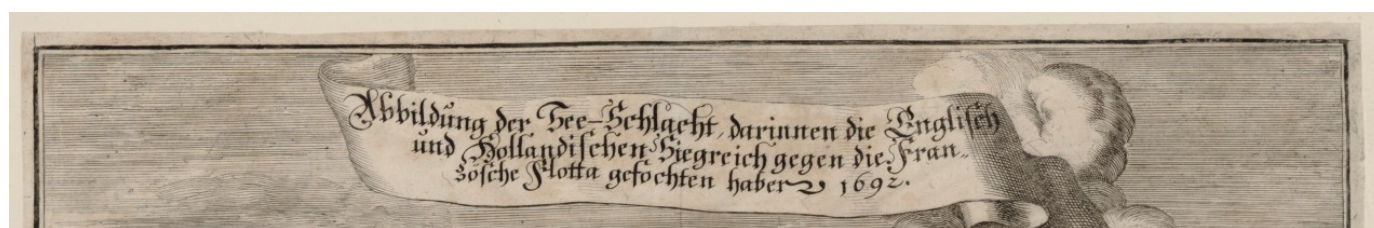 Abbildung der See-Schlacht, darinnen die Englisch
und Hollandischen Siegreich gegen die Fran-
zösche Flotta gefochten haben 1692.